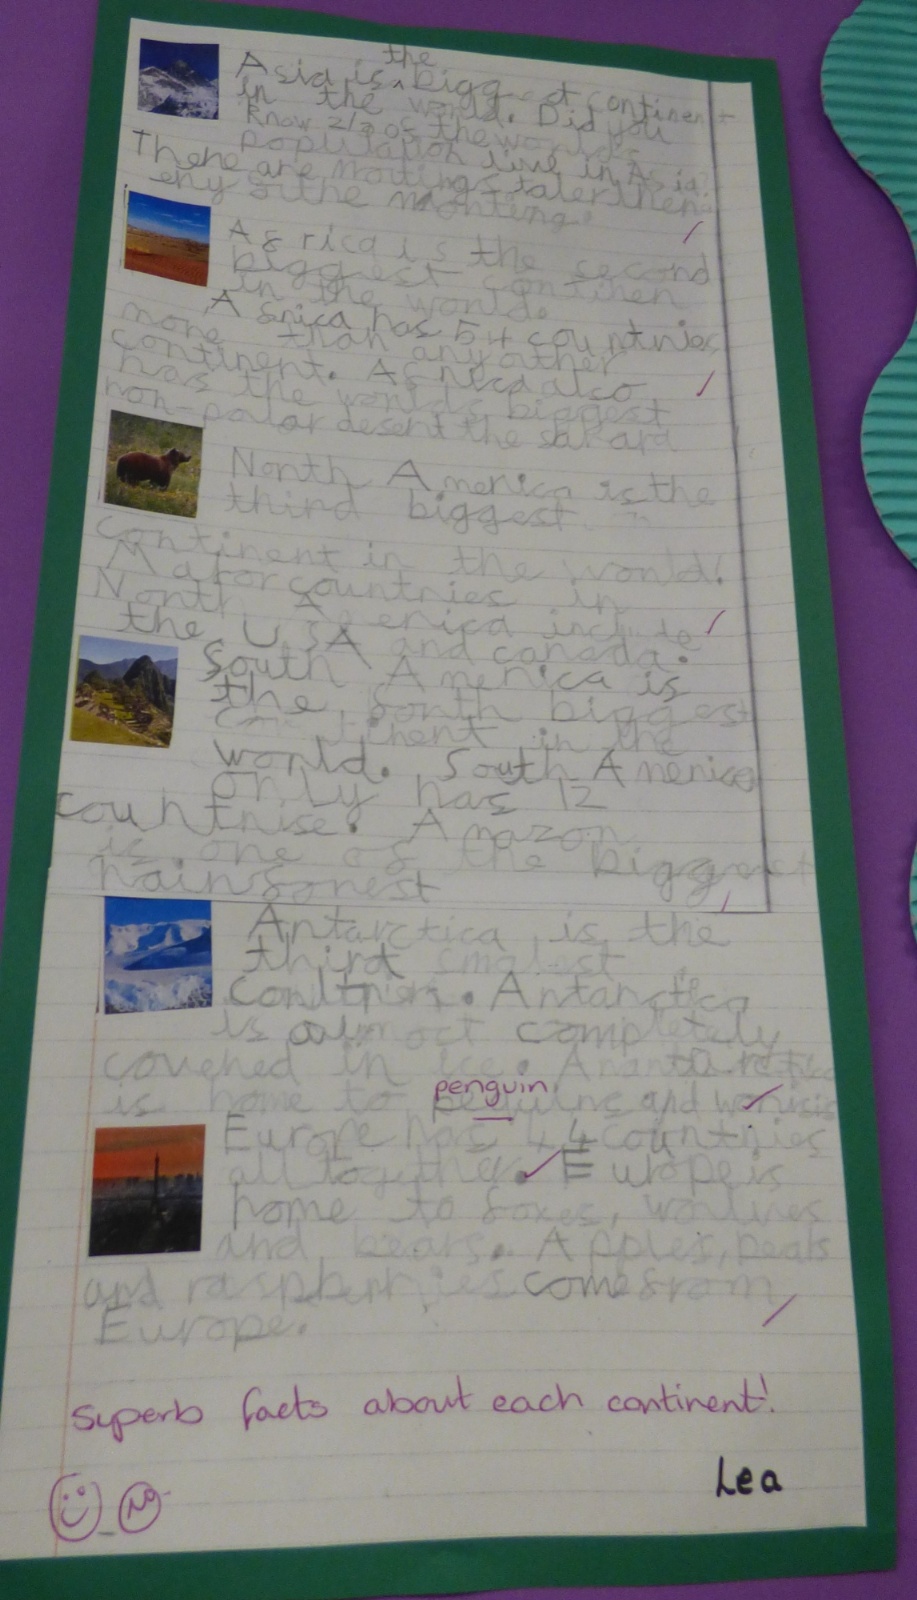 the
Asia is ^ biggest continent
in the world. Did you
know 2/3 of the world's
population live in Asia?
There are
eny of the
Africa is the second
biggest continen
in the world.
Africa has 54 countries,
more than any other
continent. Africa also
has the worlds biggest
non-polar desert the sahara
North America is the
third biggest
continent in the world!
Mafor countries in
North America include
the USA and canada.
South America is
the forth biggest
continent in the
world. South America
only has 12
countrise. Amazon
is one of the biggest
rainforest
Antarctica is the
third smalest
Antarctica
is almost completely
covered in ice.
is home to penguin and
Europe has 44 countries
all together. Europe is
home to foxes, wolives
and bears. Apples, pears
and raspberries come from
Europe.
superb facts about each continent!
Lea